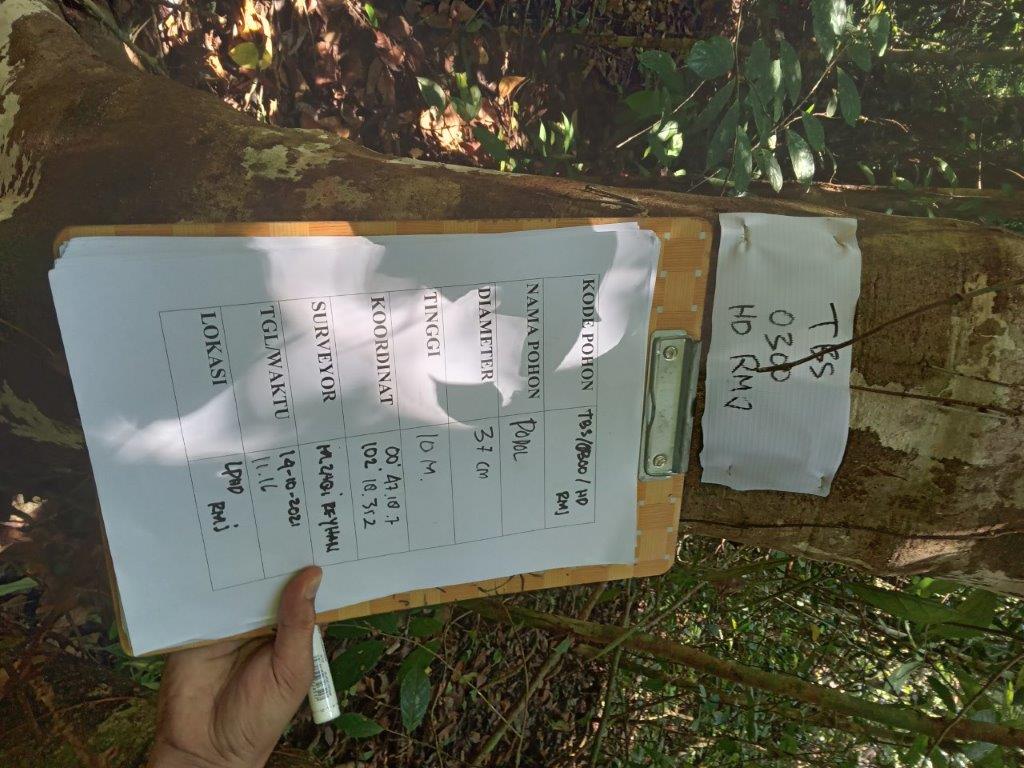 TBS
0300
HD RMJ
KODE POHON TBS/0300/HD
RMJ
NAMA POHON PODOL
DIAMETER 37 cm
TINGGI 10 M.
KOORDINAT 00° 47.18.7
102° 18.352
SURVEYOR M.ZAQI REYHAN
TGL/WAKTU 19-10-2021
11.16
LOKASI LPHD
RMJ